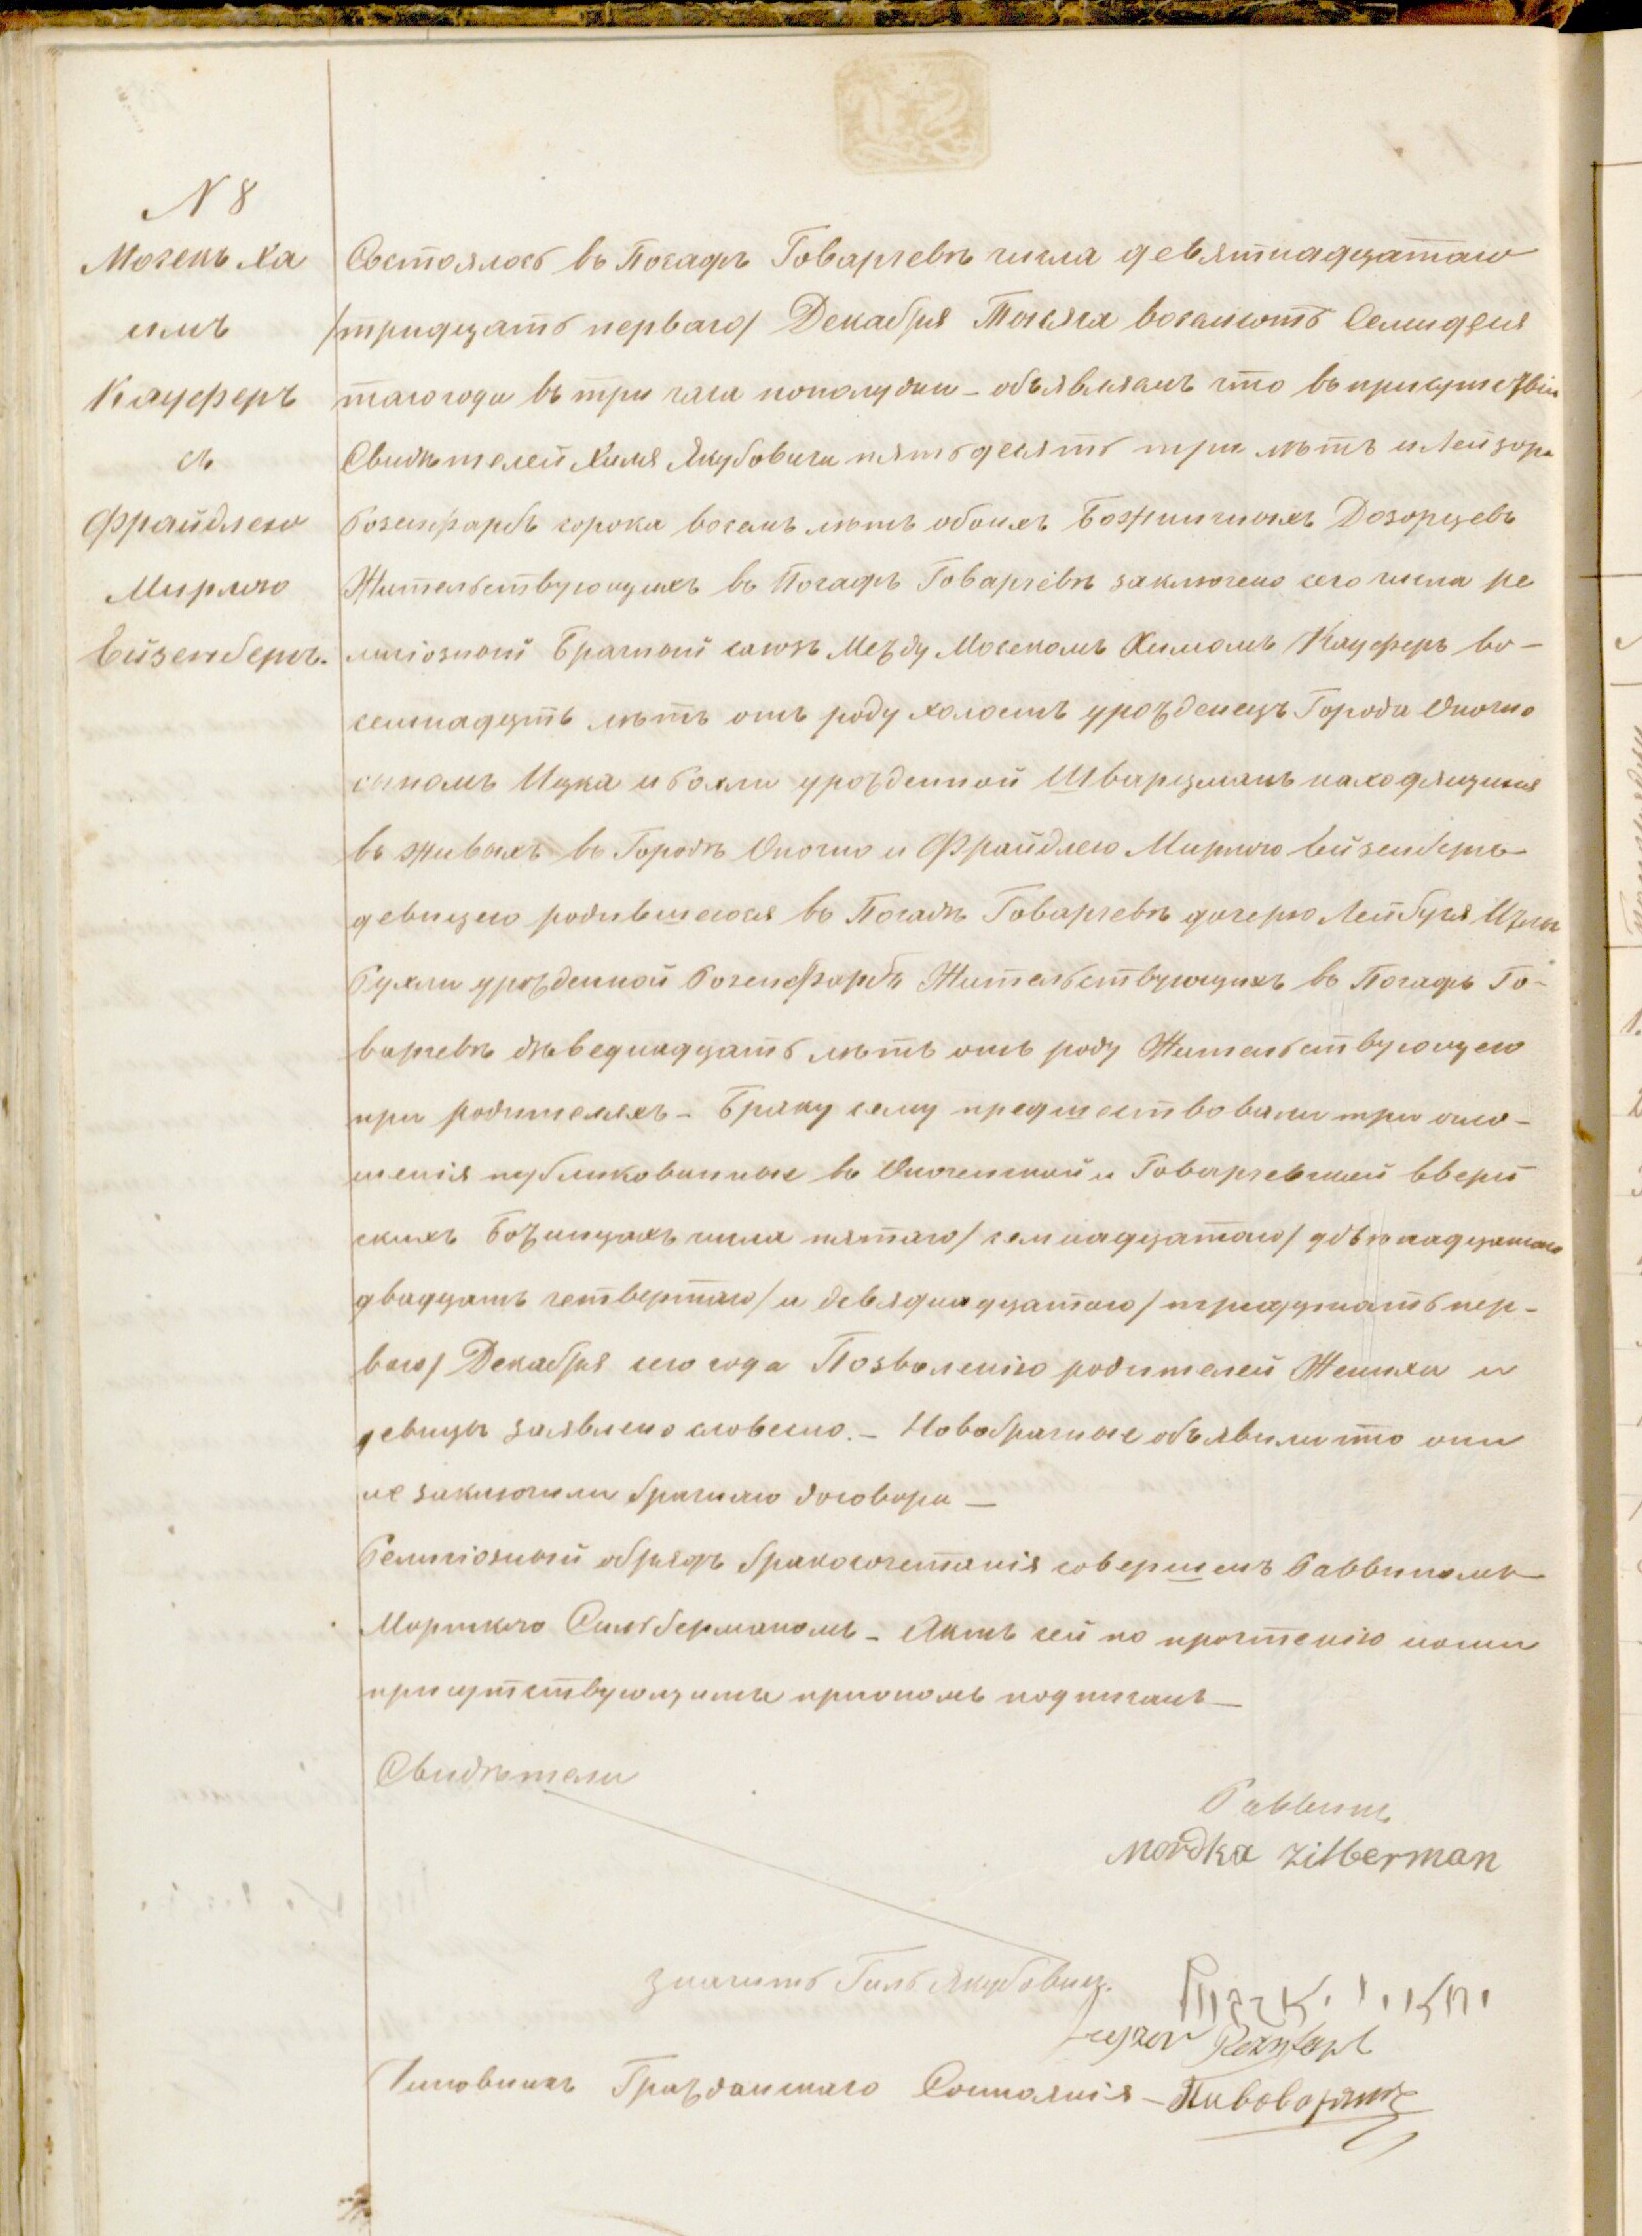 N 8
Мосекъ Ха
имъ
Кауферъ
съ
Фрайдлею
Мирлою
Вейзенбергъ.
Состоялось въ Посадѣ Говарчевѣ числа девятнадцатаго
/тридцать перваго/ Декабря Тысяча восемьсотъ Семидеся
таго года въ три часа пополудни – объявляемъ что въ присутствіи
Свидѣтелей Хиля Якубовича пятьдесятъ три лѣтъ и Лейзора
Розенфарбъ сорока восемь лѣтъ обоихъ Божничныхъ Дозорцевъ
Жительствующихъ въ Посадѣ Говарчевѣ заключено сего числа ре
лигіозной Брачной союзъ Между Мосекомъ Хаимомъ Кауферъ во–
семнадцть лѣтъ отъ роду холостъ урожденецъ Города Опочно
сыномъ Ицка и Рохли урожденной Шварцманъ находящимся
въ живыхъ въ Городѣ Опочно и Фрайдлею Мирлою Вейзенбергъ
девицею родившеюся въ Посадѣ Говарчевѣ дочерю Лейбуся И
Рухли урожденной Розенфарбъ Жительствующихъ въ Посадѣ Го–
варчевѣ деведнадцать лѣтъ отъ роду Жительствующею
при родителяхъ – Браку сему предшествовали три огло–
шенія публикованные въ Опоченской и Говарчевской Еврей
скихъ Божницахъ числа пятаго/семнадцатаго/двѣнадцатаго
двадцать четвертаго/и девяднадцатаго/тридцать пер–
ваго/ Декабря сего года Позволенію родителей Жениха и
девицы заявлено словесно. – Новобрачные объявили что они
не заключили брачнаго договора –
Религіозный обрядъ бракосочетанія совершенъ Раввиномъ
Мордкою Сильберманомъ – Актъ сей по прочтенію нами
присутствующимъ при ономъ подписанъ –
Свидѣтели
Раввинъ
Mordka Zilberman
значитъ Гиль Якубовичъ.
Leyzor Rozenfarb
Чиновникъ Гражданскаго Состоянія – Пивоварчикъ